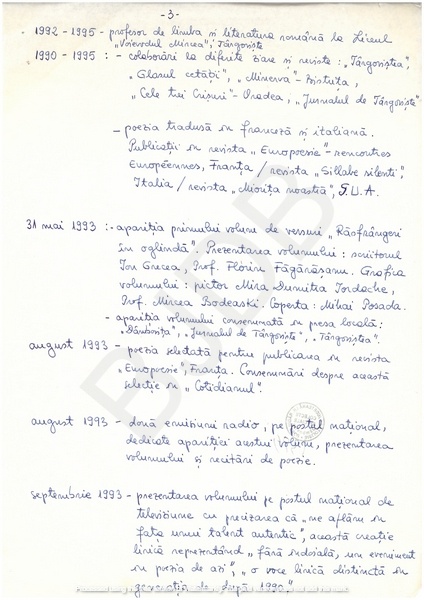 -3-
1992-1995 - profesor de limba și literatura română la Liceul
"Voievodul Mircea", Târgoviște
1990-1995: - colaborări la diferite ziare și reviste: "Târgoviștea",
"Glasul cetății", "Minerva"-Bistrița,
"Cele trei Crișuri"-Oradea, "Jurnalul de Târgoviște"
- poezia tradusă în franceză și italiană.
Publicații în revista "Europoesie"-rencontres
Européennes, Franța / revista "Sillabe silenti",
Italia / revista "Miorița noastră", S.U.A.
31 mai 1993: - apariția primului volum de versuri "Răsfrângeri
în oglindă". Prezentarea volumului: scriitorul
Ion Grecea, Prof. Florin Făgărășanu. Grafia
volumului: pictor Mira Dumitra Iordache,
Prof. Mircea Bodeaski. Coperta: Mihai Posada.
- apariția volumului consemnată în presa locală:
"Dâmbovița", "Jurnalul de Târgoviște", "Târgoviștea".
august 1993 - poezia selectată pentru publicarea în revista
"Europoesie", Franța. Consemnări despre această
selecție în "Cotidianul".
august 1993 - două emisiuni radio, pe postul național,
dedicate apariției acestui volum, prezentarea
volumului și recitări de poezie.
septembrie 1993 - prezentarea volumului pe postul național de
televiziune cu precizarea că "ne aflăm în
fața unui talent autentic", această creație
lirică reprezentând "fără îndoială, un eveniment
în poezia de azi", "o voce lirică distinctă în
generația de după 1990"